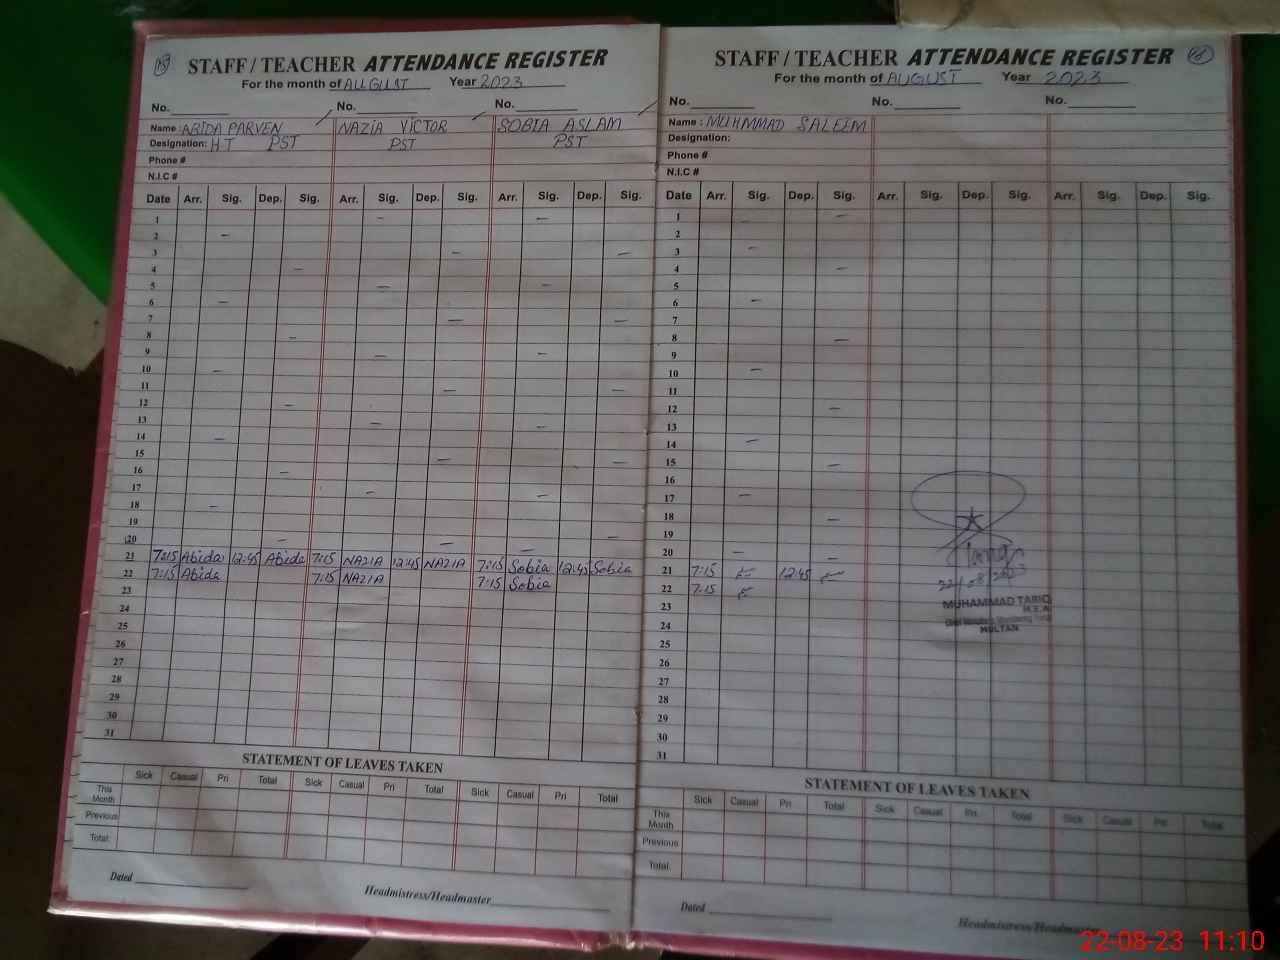 STAFF / TEACHER ATTENDANCE REGISTER
For the month of AUGUST Year 2023
No. No. No.
Name : ABIDA PARVEN NAZIA VICTOR SOBIA ASLAM
Designation: H.T PST PST PST
Phone #
N.I.C #
Date Arr. Sig. Dep. Sig. Arr. Sig. Dep. Sig. Arr. Sig. Dep. Sig.
1 — —
2 —
3 — —
4 —
5 — —
6 —
7 — —
8 —
9 — —
10 —
11 — —
12 —
13 — —
14 —
15 — —
16 —
17 — —
18 —
19
20 — — —
21 7:15 Abida 12:45 Abida 7:15 NAZIA 12:45 NAZIA 7:15 Sobia 12:45 Sobia
22 7:15 Abida 7:15 NAZIA 7:15 Sobia
23
24
25
26
27
28
29
30
31
STATEMENT OF LEAVES TAKEN
Sick Casual Pri Total Sick Casual Pri Total Sick Casual Pri Total
This Month
Previous
Total
Dated
Headmistress/Headmaster
STAFF / TEACHER ATTENDANCE REGISTER
For the month of AUGUST Year 2023
No. No. No.
Name : MUHMMAD SALEEM
Designation:
Phone #
N.I.C #
Date Arr. Sig. Dep. Sig. Arr. Sig. Dep. Sig. Arr. Sig. Dep. Sig.
1 — —
2
3 —
4 —
5
6 —
7
8 —
9
10 —
11
12 —
13
14 —
15 —
16
17 —
18 —
19
20 — —
21 7:15 12:45
22 7:15
23
24
25
26
27
28
29
30
31
22/08/2023
MUHAMMAD TARIQ
M.E.A
MULTAN
STATEMENT OF LEAVES TAKEN
Sick Casual Pri Total Sick Casual Pri Total Sick Casual Pri Total
This Month
Previous
Total
Dated
Headmistress/Headmaster
22-08-23 11:10